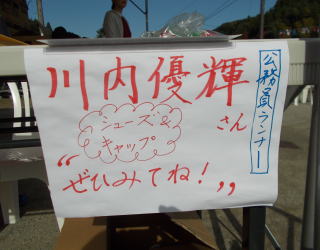 公務員ランナー
川内優輝
さん
シューズ&
キャップ
“ぜひみてね!”